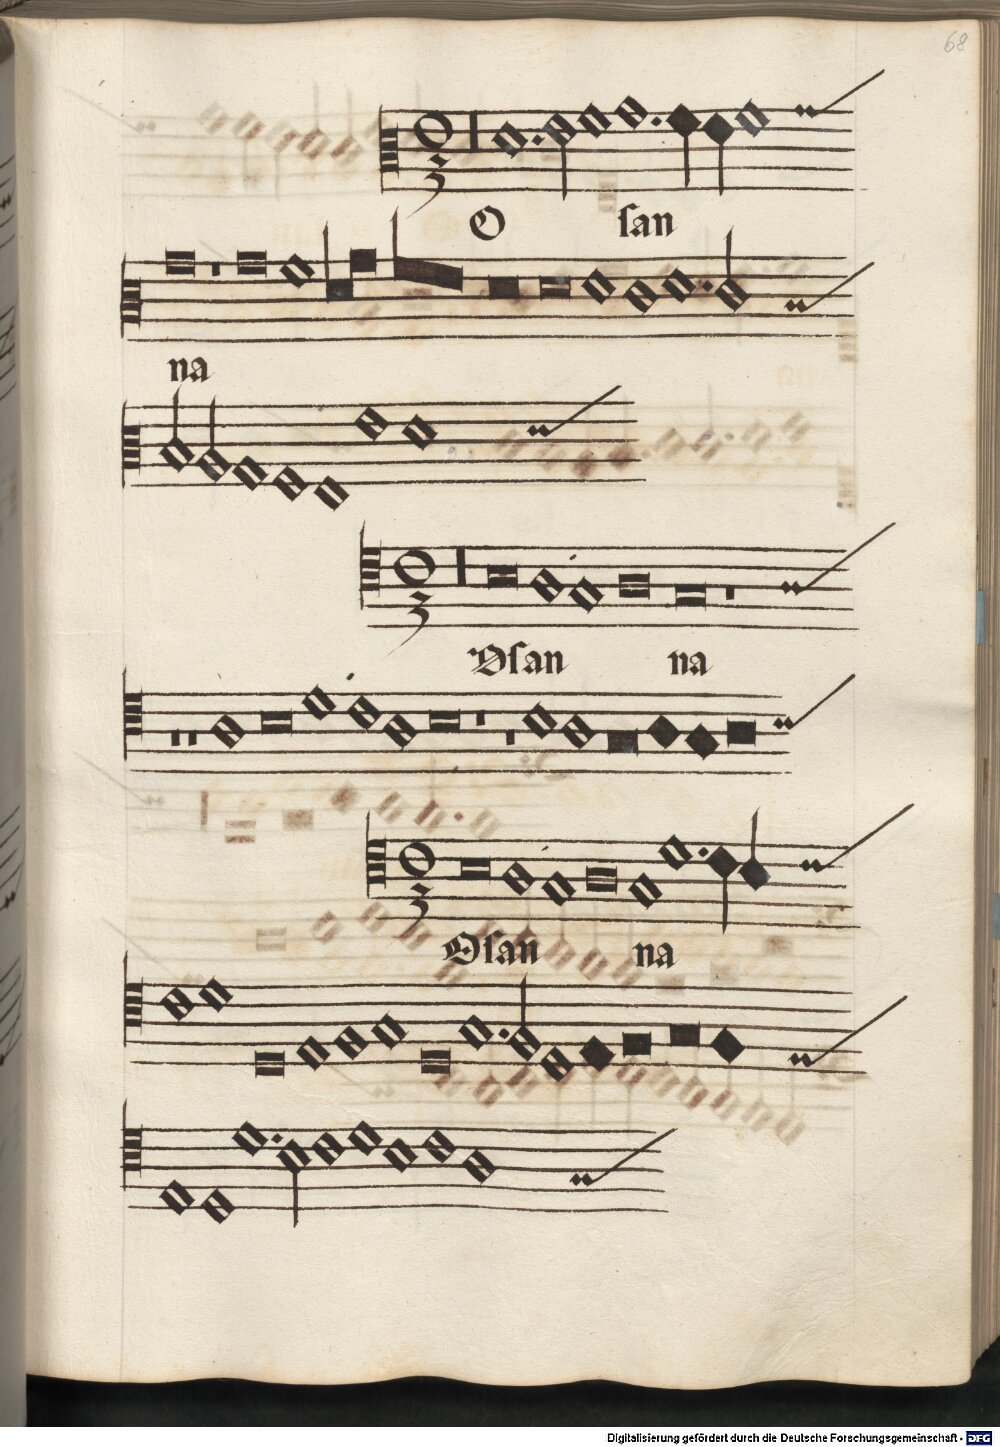 68
O ſan
na
Oſan na
Oſan na
Digitalisierung gefördert durch die Deutsche Forschungsgemeinschaft - DFG